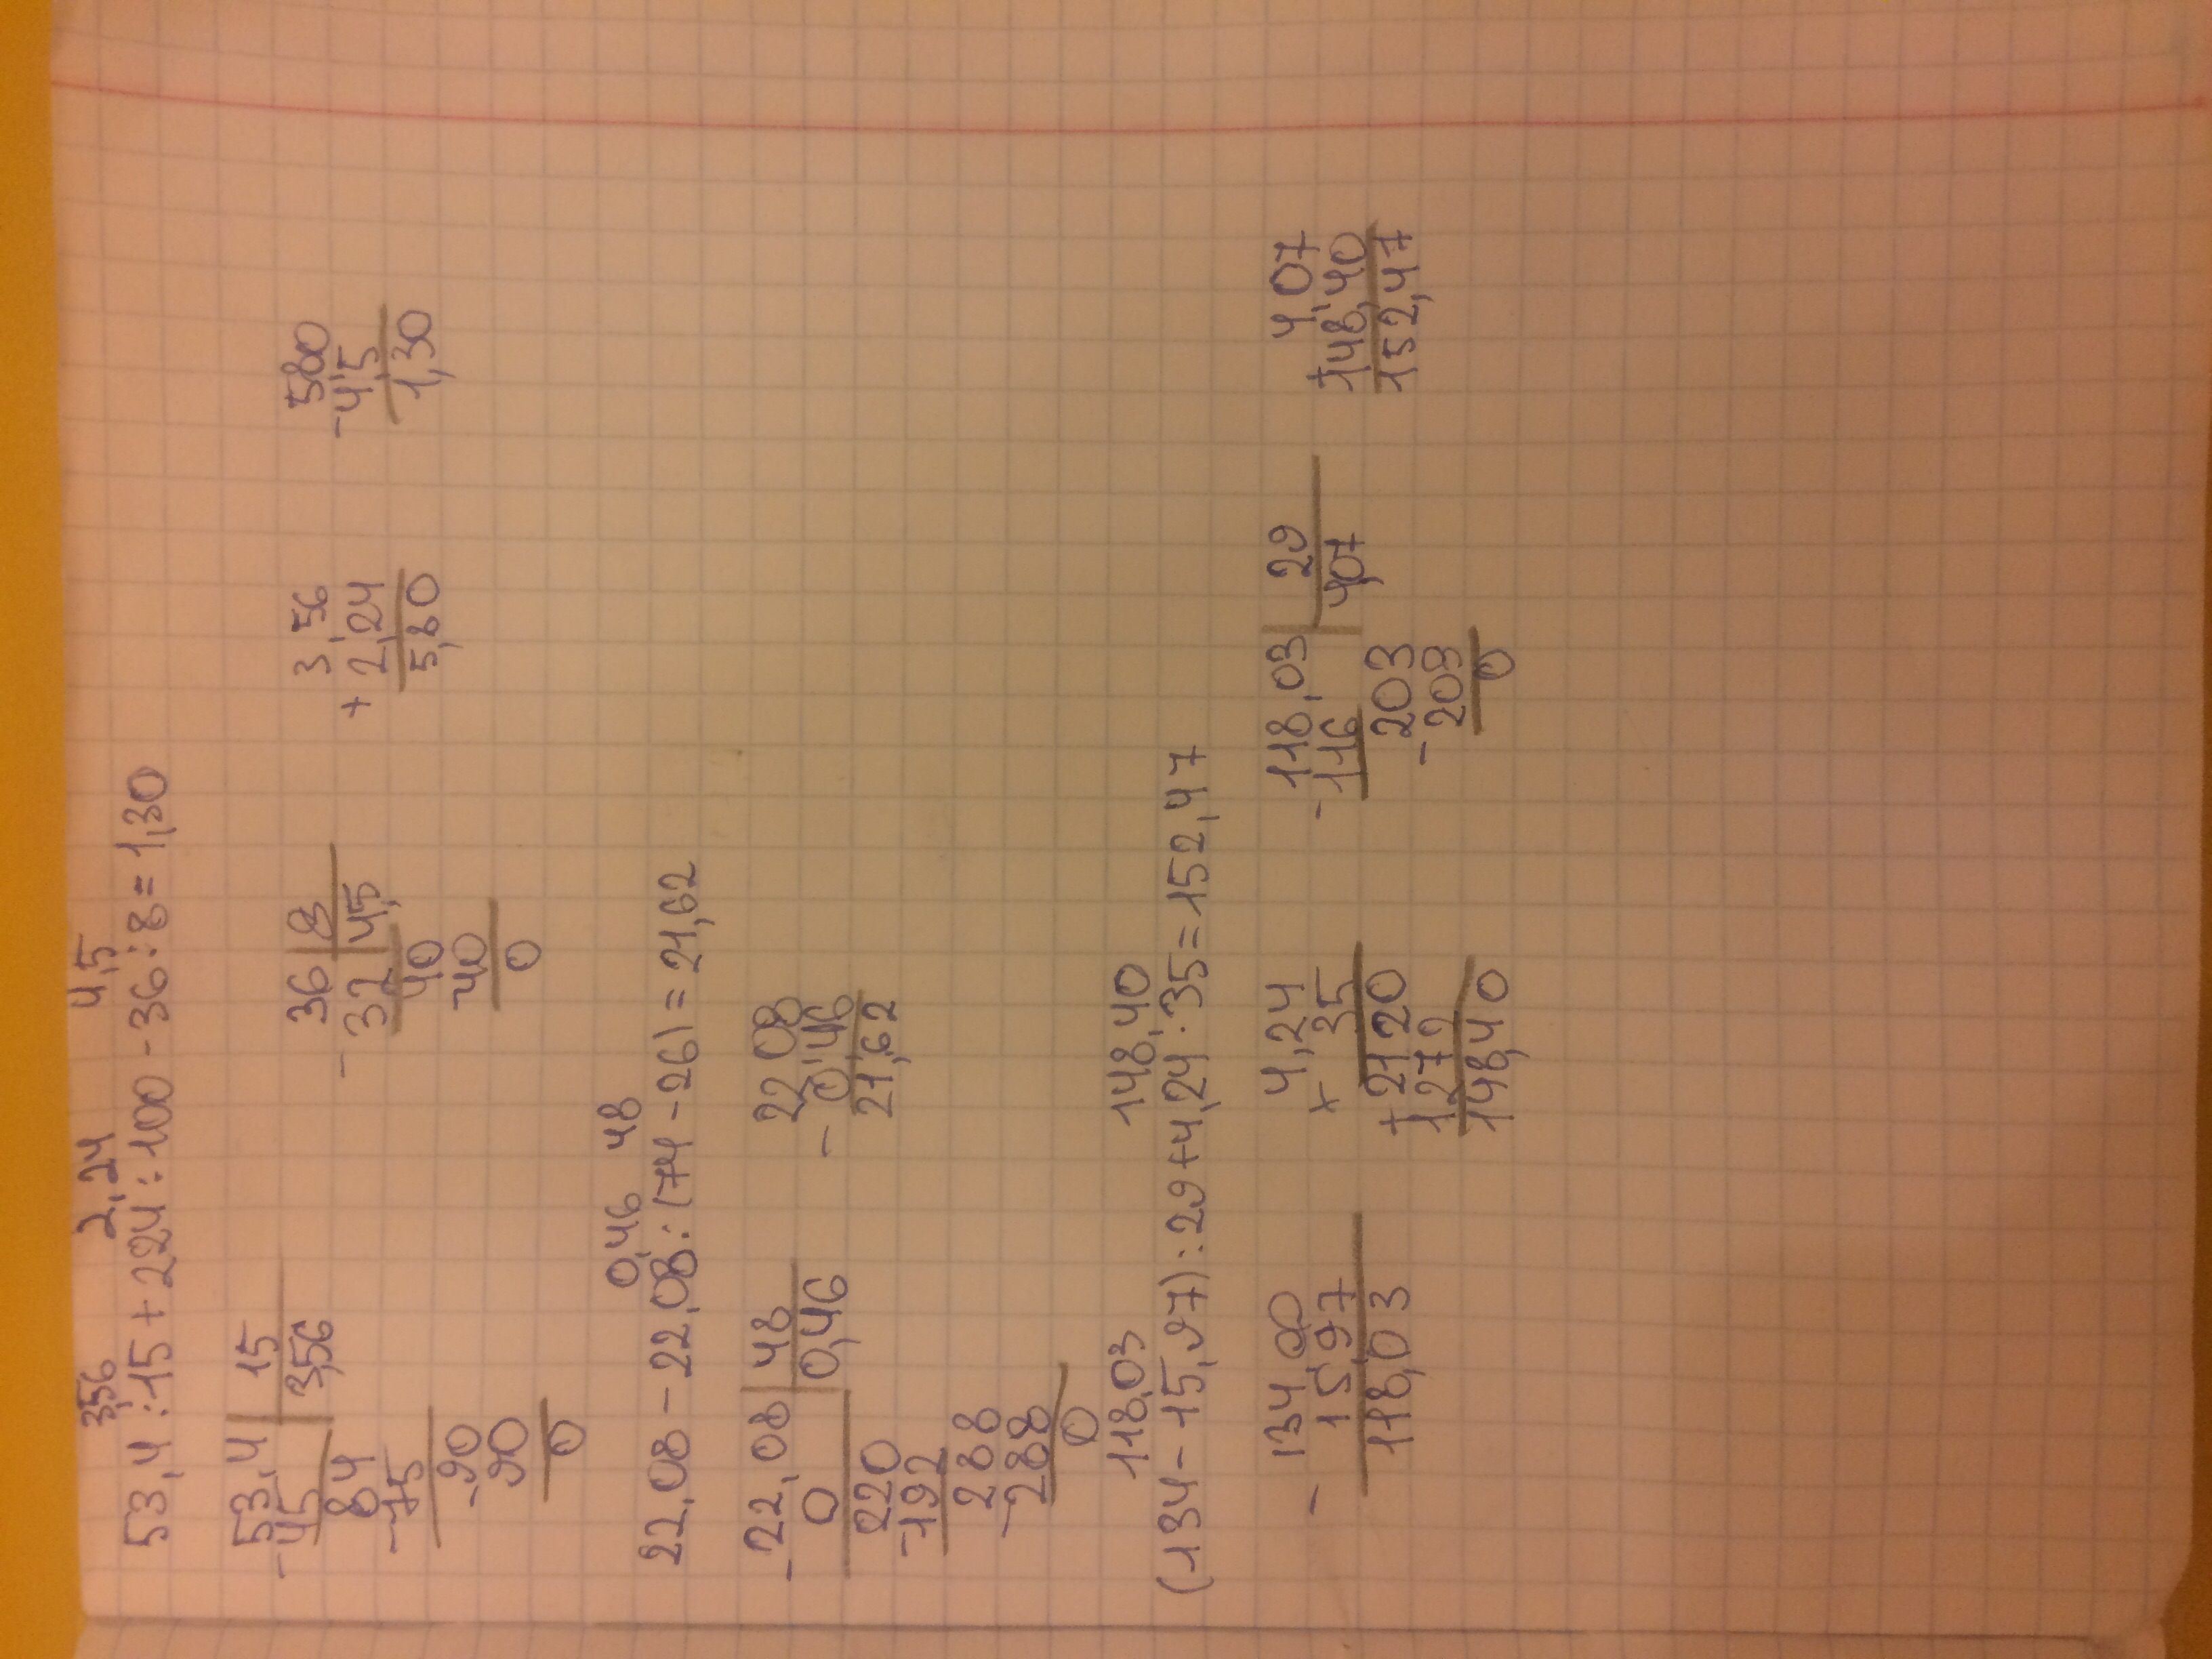 3,56 2,24 4,5
53,4:15+224:100-36:8=1,30
53,4 15
-45 3,56
84
-75
-90
90
0
36 8
-32 4,5
40
40
0
3,56
+2,24
5,80
5,80
-4,5
1,30
0,46 48
22,08-22,08:(74-26)=21,62
-22,08 48
0 0,46
220
-192
288
-288
0
22,08
-0,46
21,62
118,03 148,40
(134-15,97):29+4,24·35=152,47
-134,00
15,97
118,03
4,24
×35
+2120
1272
148,40
118,03 29
-116 4,07
203
-203
0
4,07
+148,40
152,47